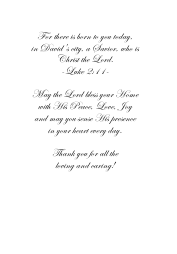 For there is born to you today,
in David's city, a Savior, who is
Christ the Lord.
-Luke 2:11-
May the Lord bless your Home
with His Peace, Love, Joy
and may you sense His presence
in your heart every day.
Thank you for all the
loving and caring!